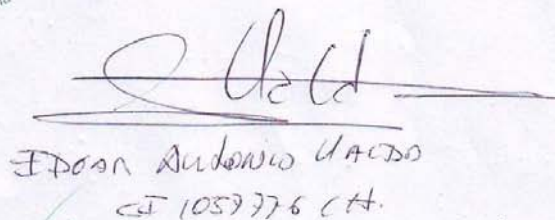 EDGAR ANTONIO VALDA
CI 1057776 CH.